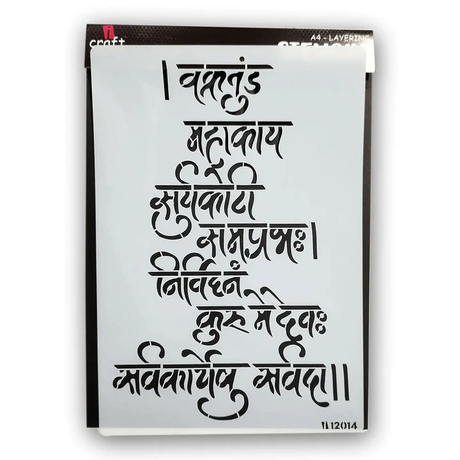 craft
A4 - LAYERING
STENCIL
। वक्रतुंड
महाकाय
सुर्यकोटी
समप्रभः।
निर्विघ्नं
कुरु मे देवः
सर्वकार्येषु सर्वदा॥
12014